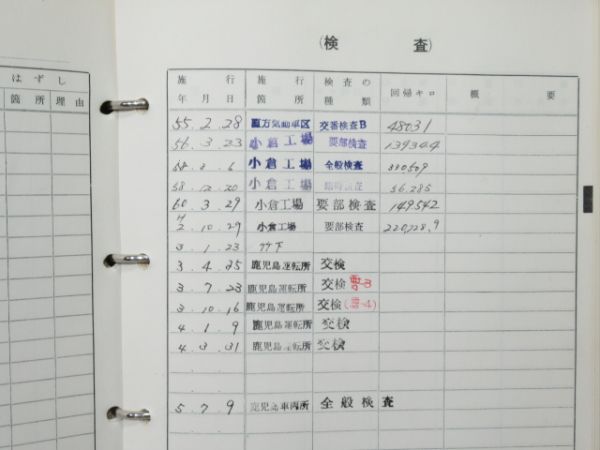 (検 査)
はずし
箇所 理由
施行年月日 施行箇所 検査の種類 回帰キロ 概要
55.2.28 直方気動車区 交番検査B 48031
56.3.23 小倉工場 要部検査 139344
58.3.6 小倉工場 全般検査 330509
58.12.20 小倉工場 臨時検査 56,285
60.3.29 小倉工場 要部検査 149542
H
2.10.29 小倉工場 要部検査 220,728.9
3.1.23 竹下
3.4.25 鹿児島運転所 交検
3.7.23 鹿児島運転所 交検
3.10.16 鹿児島運転所 交検
4.1.9 鹿児島運転所 交検
4.3.31 鹿児島運転所 交検
5.7.9 鹿児島車両所 全般検査